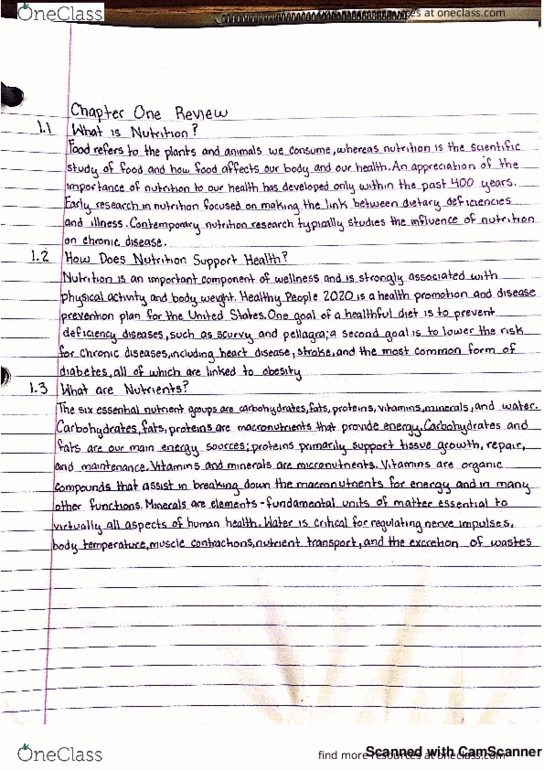 OneClass
es at oneclass.com
Chapter One Review
1.1 What is Nutrition?
Food refers to the plants and animals we consume, whereas nutrition is the scientific
study of food and how food affects our body and our health. An appreciation of the
importance of nutrition to our health has developed only within the past 400 years.
Early research in nutrition focused on making the link between dietary deficiencies
and illness. Contemporary nutrition research typically studies the influence of nutrition
on chronic disease.
1.2 How Does Nutrition Support Health?
Nutrition is an important component of wellness and is strongly associated with
physical activity and body weight. Healthy People 2020 is a health promotion and disease
prevention plan for the United States. One goal of a healthful diet is to prevent
deficiency diseases, such as scurvy and pellagra; a second goal is to lower the risk
for chronic diseases, including heart disease, stroke, and the most common form of
diabetes, all of which are linked to obesity
1.3 What are Nutrients?
The six essential nutrient groups are carbohydrates, fats, proteins, vitamins, minerals, and water.
Carbohydrates, fats, proteins are macronutrients that provide energy. Carbohydrates and
fats are our main energy sources; proteins primarily support tissue growth, repair,
and maintenance. Vitamins and minerals are micronutrients. Vitamins are organic
compounds that assist in breaking down the macronutrients for energy and in many
other functions. Minerals are elements - fundamental units of matter essential to
virtually all aspects of human health. Water is critical for regulating nerve impulses,
body temperature, muscle contractions, nutrient transport, and the excretion of wastes
OneClass
find more resources at oneclass.com
Scanned with CamScanner